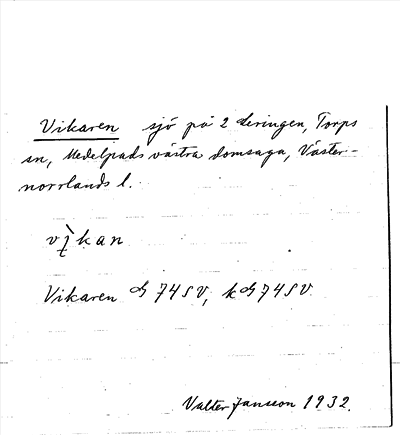 Vikaren sjö på 2 Leringen, Torps
sn, Medelpads västra domsaga, Väster-
norrlands l.
vì̖kan
Vikaren G 74 S V, kG 74 S V
Valter Jansson 1932.